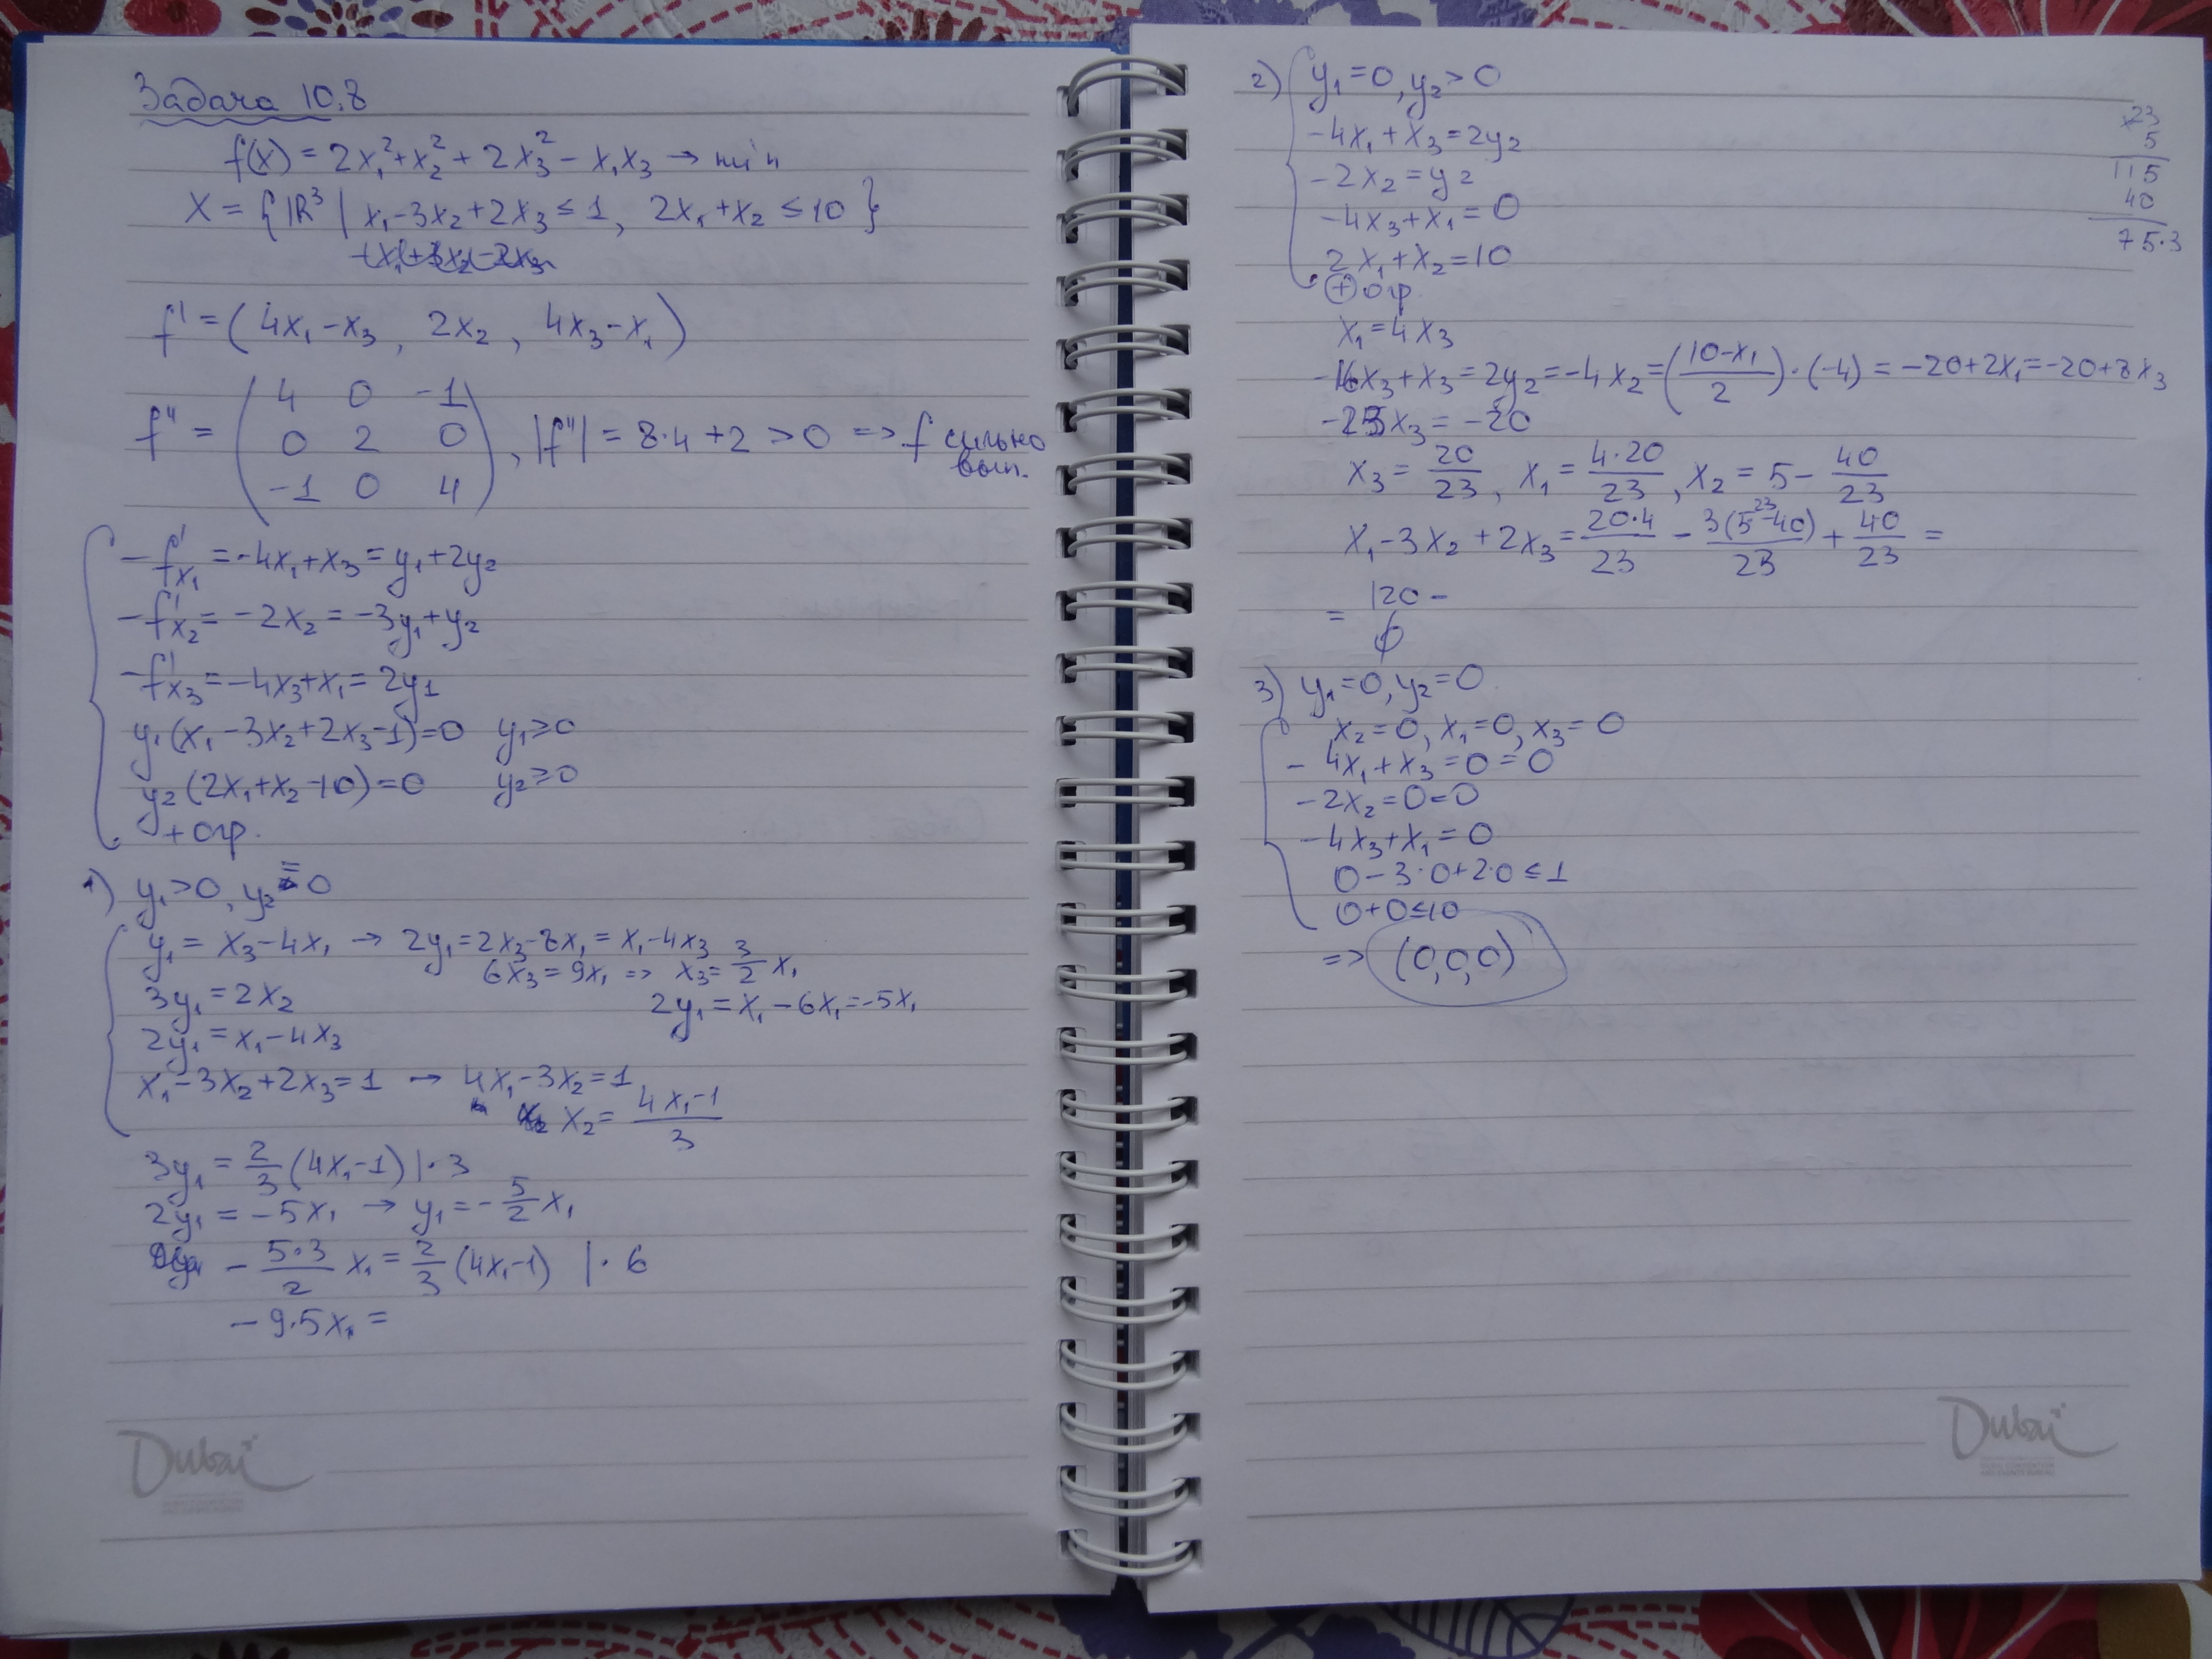 Задача 10.8
f(x) = 2x₁² + x₂² + 2x₃² − x₁x₃ → min
X = { ℝ³ | x₁ − 3x₂ + 2x₃ ≤ 1, 2x₁ + x₂ ≤ 10 }
f' = ( 4x₁ − x₃ , 2x₂ , 4x₃ − x₁ )
f'' = ( 4 0 −1
0 2 0
−1 0 4 ) , |f''| = 8·4 + 2 > 0 => f сильно вып.
−f'x₁ = −4x₁ + x₃ = y₁ + 2y₂
−f'x₂ = −2x₂ = −3y₁ + y₂
−f'x₃ = −4x₃ + x₁ = 2y₁
y₁(x₁ − 3x₂ + 2x₃ − 1) = 0 y₁ ≥ 0
y₂(2x₁ + x₂ − 10) = 0 y₂ ≥ 0
+ огр.
1) y₁ > 0, y₂ = 0
y₁ = x₃ − 4x₁ → 2y₁ = 2x₃ − 8x₁ = x₁ − 4x₃
6x₃ = 9x₁ => x₃ = 3/2 x₁
3y₁ = 2x₂ 2y₁ = x₁ − 6x₁ = −5x₁
2y₁ = x₁ − 4x₃
x₁ − 3x₂ + 2x₃ = 1 → 4x₁ − 3x₂ = 1
x₂ = (4x₁ − 1)/3
3y₁ = 2/3 (4x₁ − 1) | · 3
2y₁ = −5x₁ → y₁ = −5/2 x₁
− 5·3/2 x₁ = 2/3 (4x₁ − 1) | · 6
− 9·5x₁ =
2) y₁ = 0, y₂ > 0
−4x₁ + x₃ = 2y₂
−2x₂ = y₂
−4x₃ + x₁ = 0
2x₁ + x₂ = 10
⊕ огр.
x₁ = 4x₃
−16x₃ + x₃ = 2y₂ = −4x₂ = ((10 − x₁)/2) · (−4) = −20 + 2x₁ = −20 + 8x₃
−23x₃ = −20
x₃ = 20/23, x₁ = 4·20/23, x₂ = 5 − 40/23
x₁ − 3x₂ + 2x₃ = 20·4/23 − 3(5·23 − 40)/23 + 40/23 =
= 120 −
×23
5
115
40
75·3
3) y₁ = 0, y₂ = 0
x₂ = 0, x₁ = 0, x₃ = 0
− 4x₁ + x₃ = 0 = 0
− 2x₂ = 0 = 0
− 4x₃ + x₁ = 0
0 − 3·0 + 2·0 ≤ 1
0 + 0 ≤ 10
=> (0, 0, 0)
Dubai
Dubai